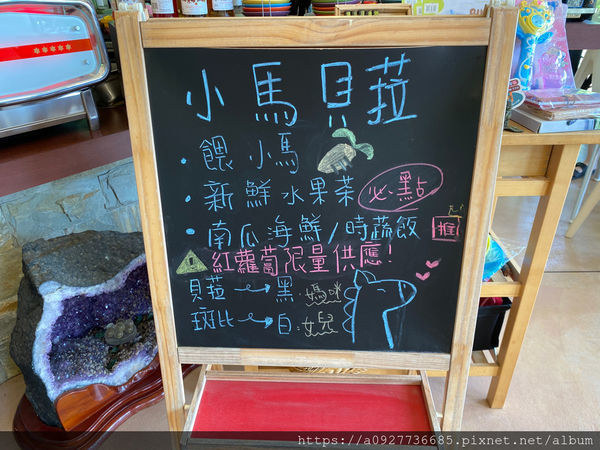 小馬貝菈
・餵小馬
・新鮮水果茶 必點
・南瓜海鮮/時蔬飯 推
紅蘿蔔限量供應!
貝菈→黑:媽咪
斑比→白:女兒
https://a0927736685.pixnet.net/album